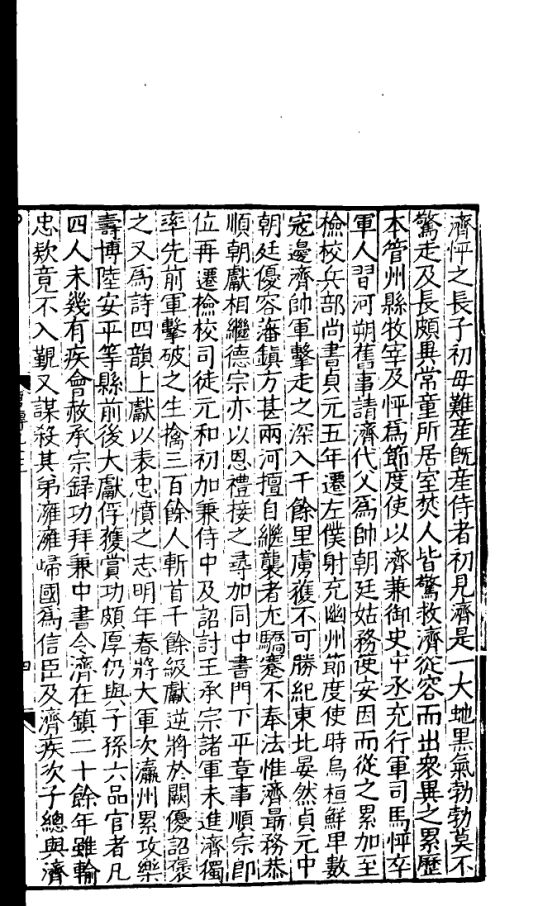 濟怦之長子初母難産旣産侍者初見濟是一大虵黑氣勃勃莫不
驚走及長頗異常童所居室焚人皆驚救濟從容而出衆異之累歷
本管州縣牧宰及怦爲節度使以濟兼御史中丞充行軍司馬怦卒
軍人習河朔舊事請濟代父爲帥朝廷姑務便安因而從之累加至
檢校兵部尚書貞元五年遷左僕射充幽州節度使時烏桓鮮卑數
寇邊濟帥軍擊走之深入千餘里虜獲不可勝紀東北晏然貞元中
朝廷優容藩鎭方甚兩河擅自繼襲者尤驕蹇不奉法惟濟最務恭
順朝獻相繼德宗亦以恩禮接之尋加同中書門下平章事順宗即
位再遷檢校司徒元和初加兼侍中及詔討王承宗諸軍未進濟獨
率先前軍擊破之生擒三百餘人斬首千餘級獻逆將於闕優詔褒
之又爲詩四韻上獻以表忠憤之志明年春將大軍次瀛州累攻樂
壽博陸安平等縣前後大獻俘獲賞功頗厚仍與子孫六品官者凡
四人未幾有疾會赦承宗録功拜兼中書令濟在鎭二十餘年雖輸
忠款竟不入覲又謀殺其弟澭澭歸國爲信臣及濟疾次子總與濟
四